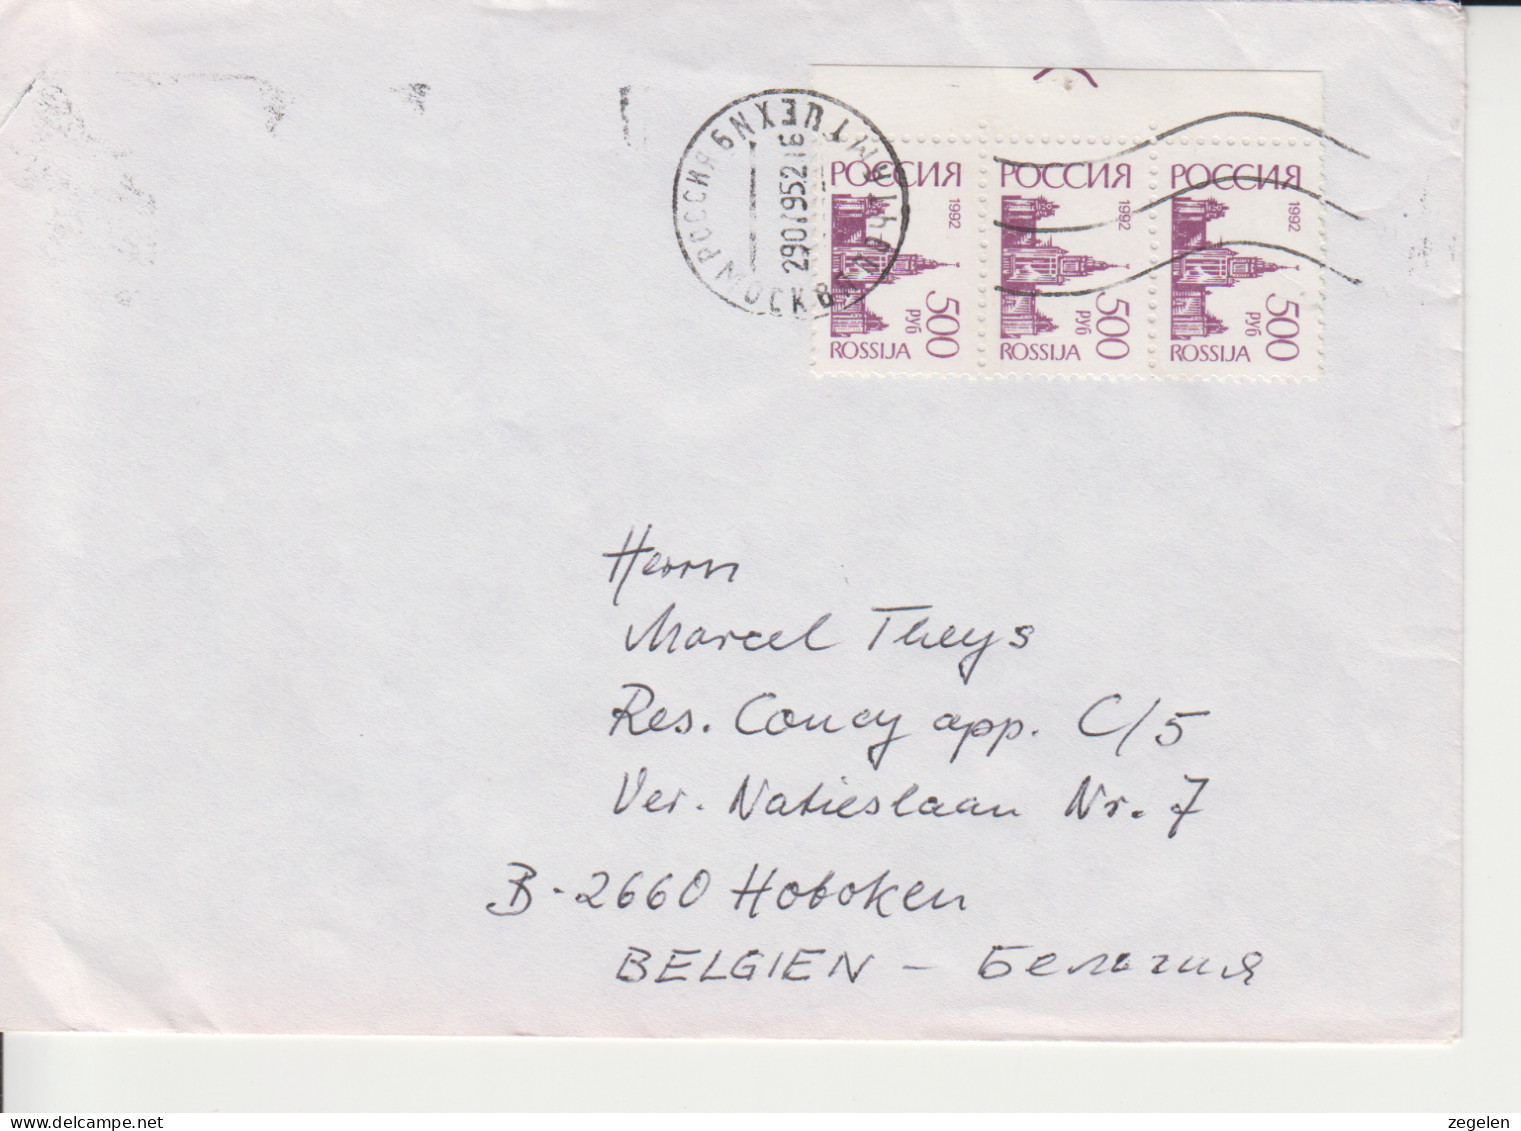 РОССИЯ МОСКВА
290795218
РОССИЯ
1992
500
РУБ
ROSSIJA
РОССИЯ
1992
500
РУБ
ROSSIJA
РОССИЯ
1992
500
РУБ
ROSSIJA
Herrn
Marcel Theys
Res. Coucy app. C/5
Ver. Natieslaan Nr. 7
B-2660 Hoboken
BELGIEN – Бельгия
zegelen